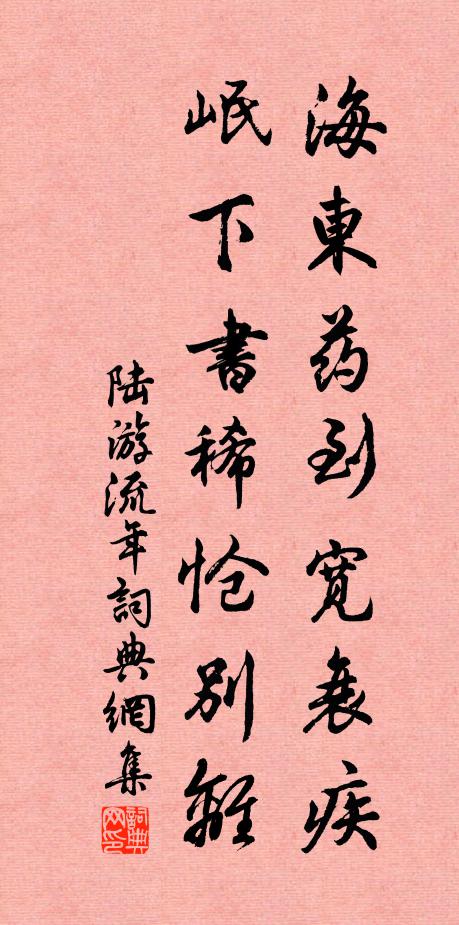 海東药到寬衰疾
岷下書稀怆別離
陆游流年詞典網集
詞典网印